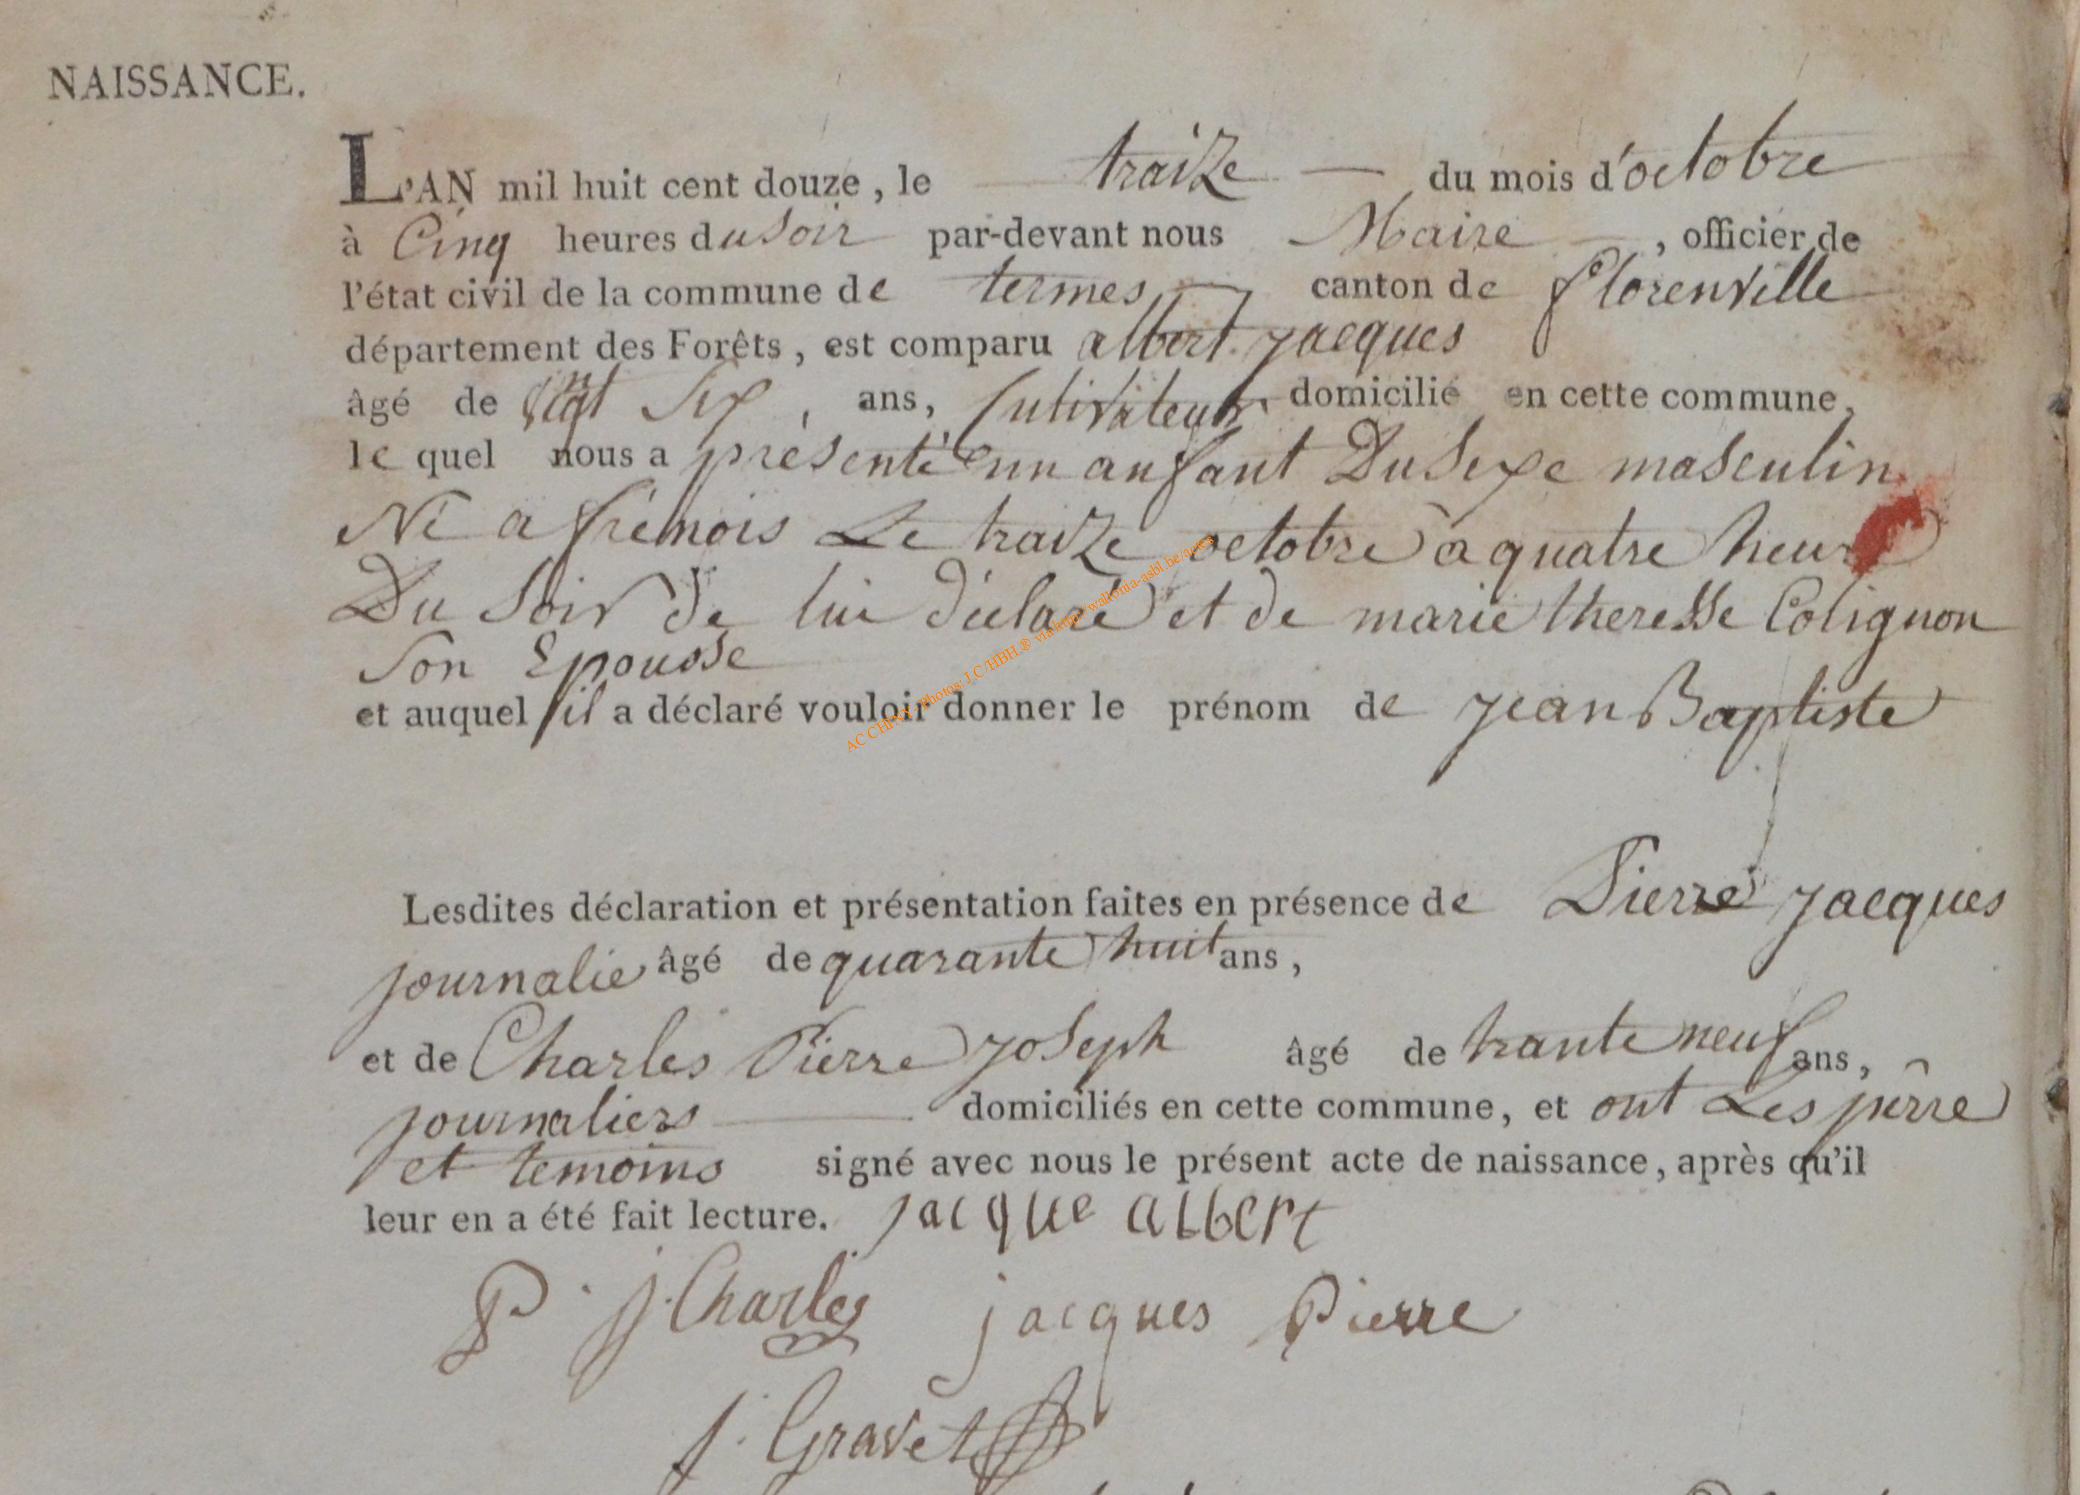 NAISSANCE.
L'AN mil huit cent douze, le traize du mois d'octobre
à Cinq heures du soir par-devant nous Maire, officier de
l'état civil de la commune de termes canton de florenville
département des Forêts, est comparu albert jacques
âgé de vingt Six, ans, Cultivateur domicilié en cette commune,
le quel nous a présenté un anfant Du Sexe masculin
Né a frémois Le traize octobre a quatre heure
Du Soir de lui déclaré et de marie theresse Colignon
Son Epousse
et auquel il a déclaré vouloir donner le prénom de jean Baptiste
Lesdites déclaration et présentation faites en présence de Pierre jacques
journalie âgé de quarante huit ans,
et de Charles Pierre joseph âgé de trante neuf ans,
journaliers domiciliés en cette commune, et ont Les pêrre
et temoins signé avec nous le présent acte de naissance, après qu'il
leur en a été fait lecture. jacque albert
P. j. Charles jacques Pierre
j. Gravet